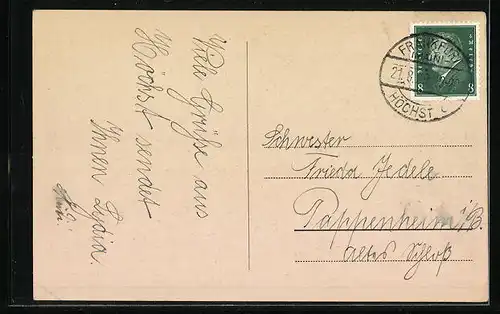 Viele Grüße aus
Höchst sendet
Ihnen Lydia.
Schwester
Frieda Jedele
Pappenheim i/B.
Altes Schloß
FRANKFURT
(MAIN)
HÖCHST
8 8